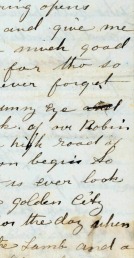 ing opens
and give me
much good
for tho so
ever forget
unny Eye
k. of our Robin
high road of
on begin to
is ever look
golden City
or the day when
the Lamb and a